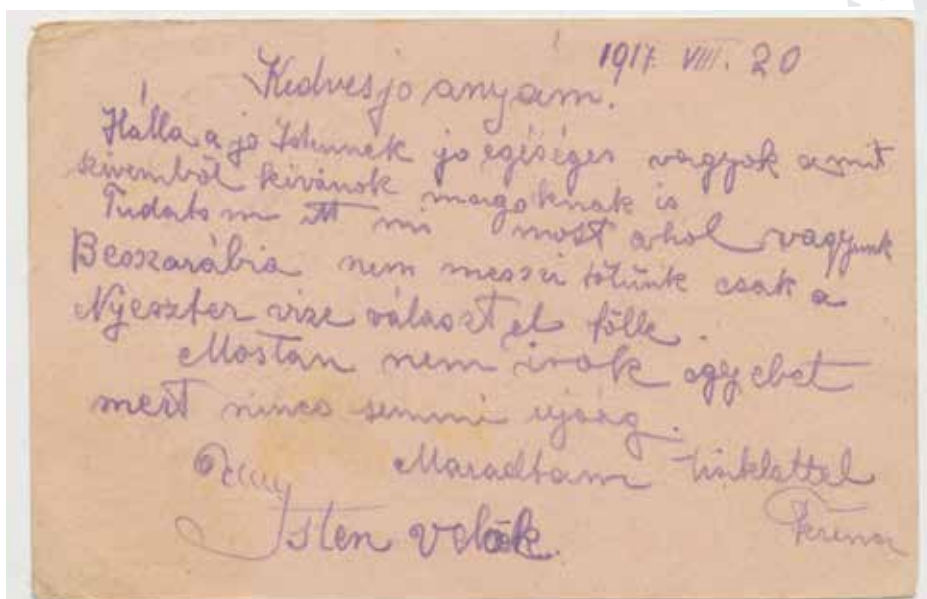 1917 VIII. 20
Kedves jo anyám.
Hálla a jo Istennek jo egéséges vagyok amit
szivemböl kivánok magoknak is
Tudato m itt mi most ahol vagyunk
Beszarábia nem meszi tölünk csak a
Nyeszter vize választ el tölle.
Mostan nem irok egyebet
mert nincs semmi ujság.
Maradtam tisklettel
Isten velök. Ferencz